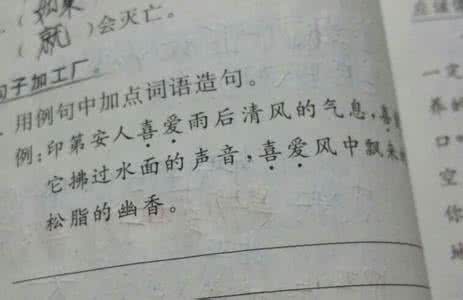 (如果
(就)会灭亡。
句子加工厂。
用例句中加点词语造句。
例:印第安人喜爱雨后清风的气息,喜
它拂过水面的声音,喜爱风中飘来
松脂的幽香。
一定
养的
口
空
你